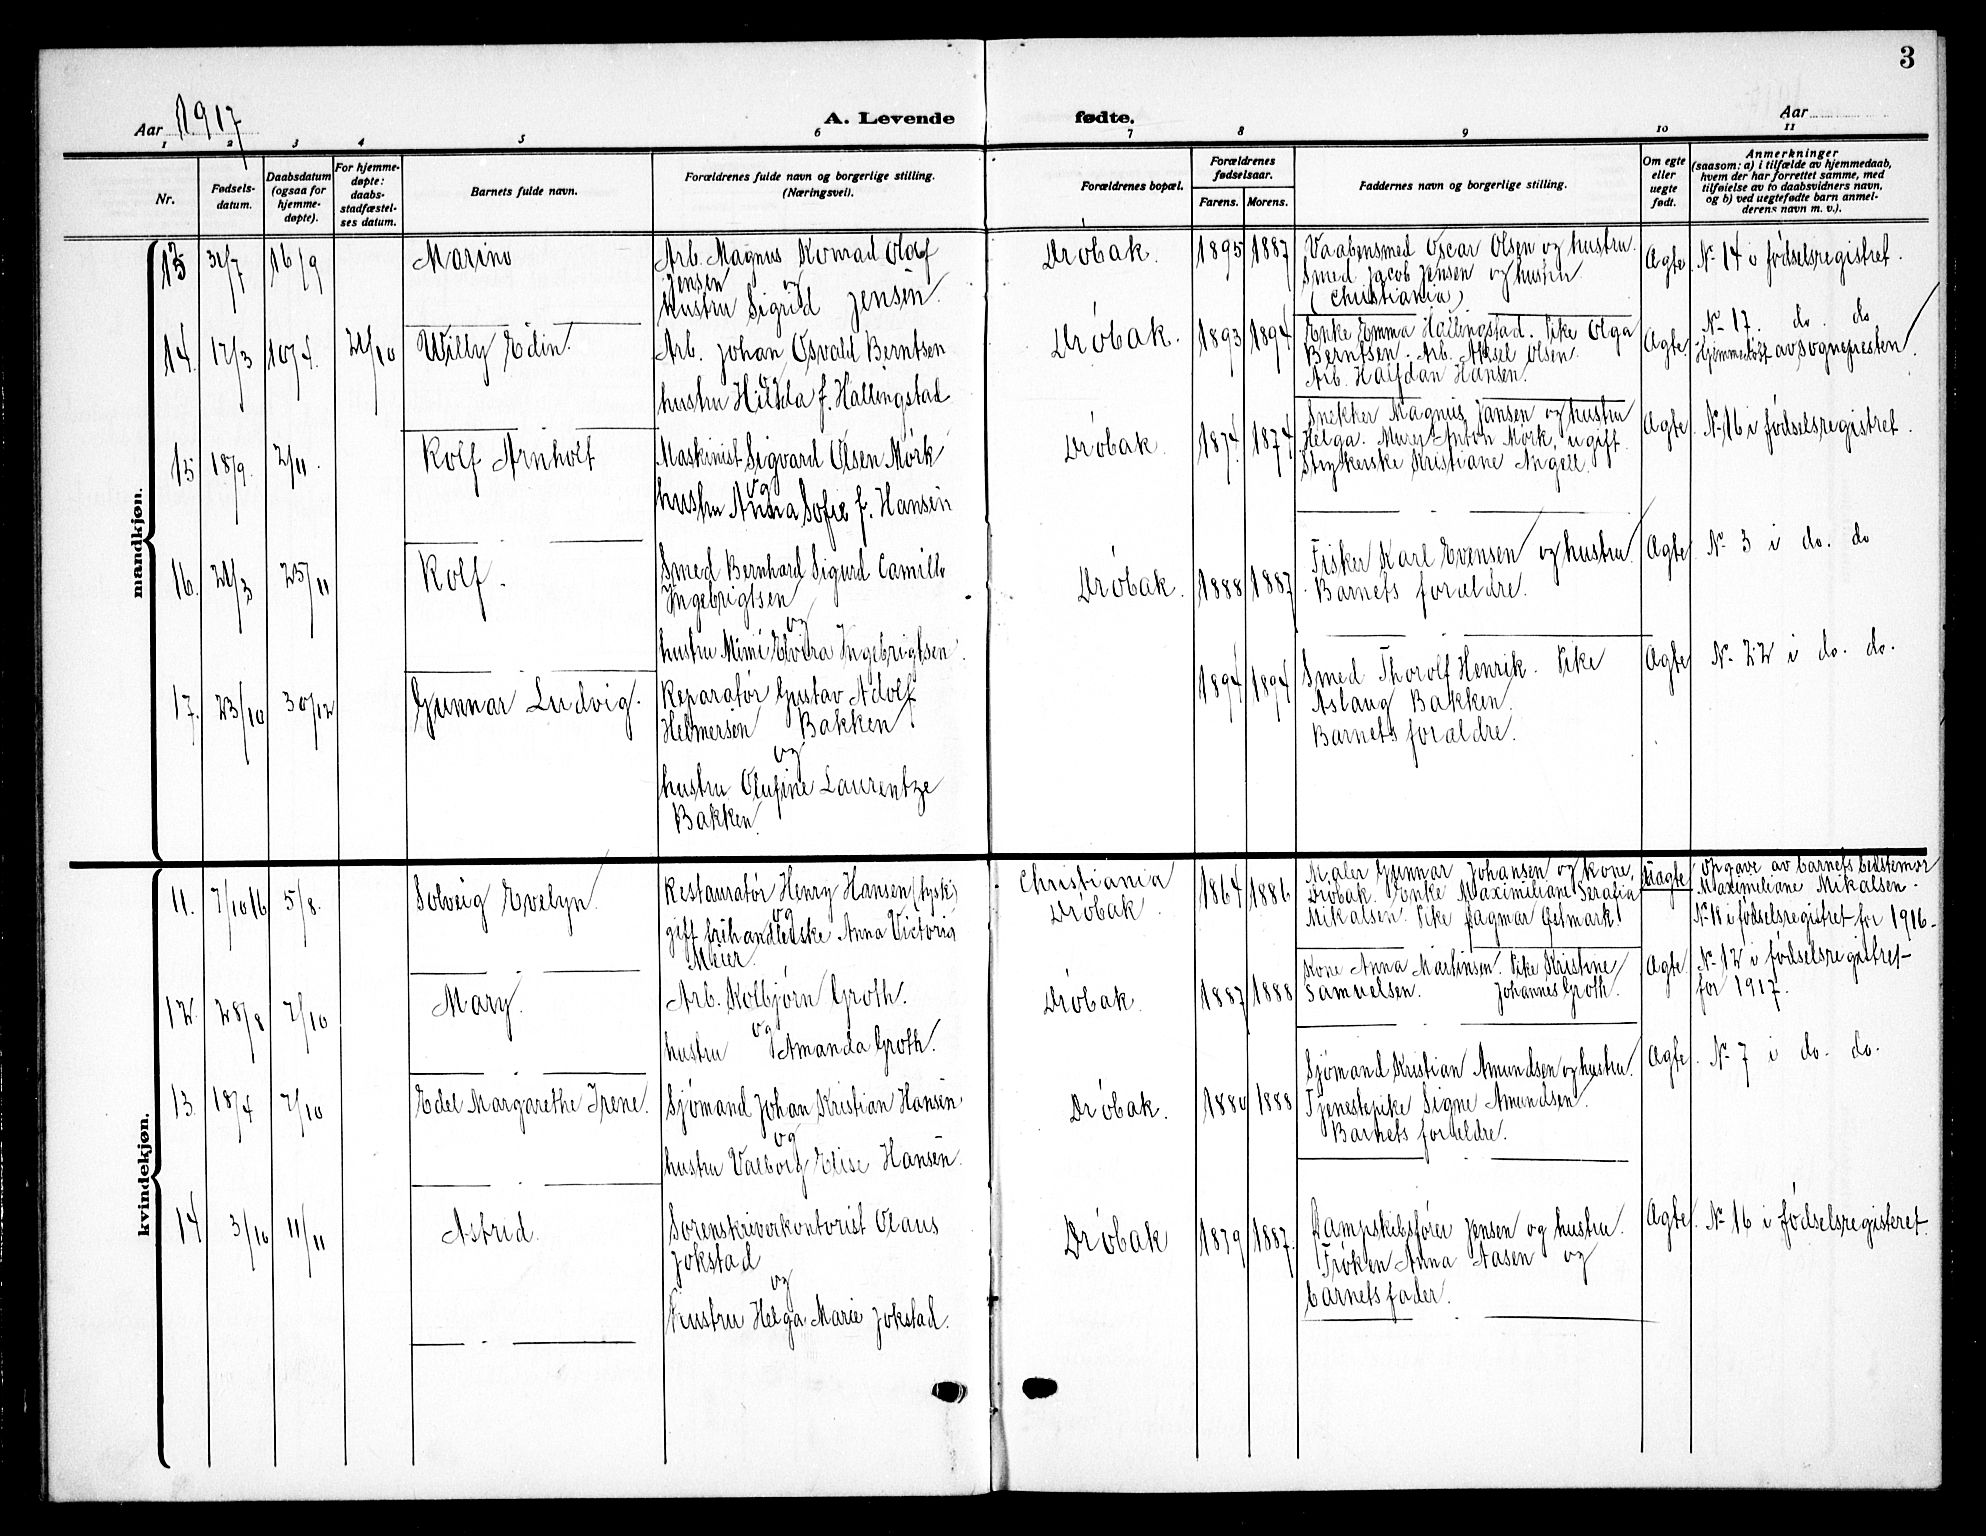 3
Aar 1917
A. Levende fødte.
Aar
1 2 3 4 5 6 7 8 9 10 11
Nr.
Fødsels-
datum.
Daabsdatum
(ogsaa for
hjemme-
døpte).
For hjemme-
døpte:
daabs-
stadfæstel-
ses datum.
Barnets fulde navn.
Forældrenes fulde navn og borgerlige stilling.
(Næringsvei).
Forældrenes bopæl.
Forældrenes
fødselsaar.
Farens. Morens.
Faddernes navn og borgerlige stilling.
Om egte
eller
uegte
født.
Anmerkninger
(saasom: a) i tilfælde av hjemmedaab,
hvem der har forrettet samme, med
tilføielse av to daabsvidners navn,
og b) ved uegtefødte barn anmel-
derens navn m. v.).
mandkjøn.
13 31/7 16/9
Marino
Arb. Magnus Konrad Olaf
Jensen og
hustru Sigrid Jensen.
Drøbak.
1895 1887
Vaabensmed Oscar Olsen og hustru.
Smed Jacob Jensen og hustru
(Christiania)
Ægte.
No 14 i fødselsregistret.
14. 17/3 10/4. 21/10
Willy Edin.
Arb. Johan Osvald Berntsen
og
hustru Hilda f. Hallingstad
Drøbak.
1893 1894
Enke Emma Hallingstad. Pike Olga
Berntsen. Arb. Aksel Olsen.
Arb. Halfdan Hansen.
Ægte.
No 17. do. do
Hjemmedøbt av sognepresten.
15 18/9. 2/11.
Rolf Arnholt
Maskinist Sigvard Olsen Mørk
og
hustru Anna Sofie f. Hansen
Drøbak.
1874. 1874
Snekker Magnus Jansen og hustru
Helga. Murer Anton Mørk, ugift.
Strykerske Kristiane Angell.
Ægte.
No 16 i fødselsregistret.
16. 21/3 25/11
Rolf.
Smed Bernhard Sigurd Camillo
Ingebrigtsen
og
hustru Mimi Elvira Ingebrigtsen.
Drøbak.
1888 1887
Fisker Karl Evensen og hustru.
Barnets forældre.
Ægte
No 3 i do. do
17. 23/10 30/12
Gunnar Ludvig.
Reparatør Gustav Adolf
Helmersen Bakken
og
hustru Olufine Laurentze
Bakken.
1894 1894
Smed Thorolf Henrik. Pike
Aslaug Bakken.
Barnets forældre.
Ægte
No 22 i do. do.
kvindekjøn.
11. 7/10 16 5/8.
Solveig Evelyn.
Restauratør Henry Hansen (tysk)
og
gift frihandlerske Anna Victoria
Meier.
Christiania
Drøbak.
1864 1886
Maler Gunnar Johansen og kone,
Drøbak. Enke Maximiliane Serafia
Mikalsen. Pike Dagmar Getmark!
Uægte
Opgave av barnets bestemor
Maximiliane Mikalsen.
No 18 i fødselsregistret for 1916.
12. 28/8 7/10
Mary.
Arb. Kolbjørn Groth.
og
hustru Amanda Groth.
Drøbak.
1887 1888
Kone Anna Martinsen. Pike Kristine
Samuelsen. Johannes Groth.
Ægte
No 12 i fødselsregistret
for 1917.
13. 18/4 7/10
Edel Margarethe Irene.
Sjømand Johan Kristian Hansen
og
hustru Valborg Elise Hansen.
Drøbak.
1880 1888
Sjømand Kristian Amundsen og hustru.
Tjenestepike Signe Amundsen.
Barnets forældre.
Ægte.
No 7 i do. do.
14 3/10 11/11
Astrid.
Sorenskriverkontorist Olaus
Jokstad
og
hustru Helga Marie Jokstad.
Drøbak
1879 1887.
Dampskibsfører Jensen og hustru.
Frøken Anna Aasen og
barnets fader.
Ægte.
No 16 i fødselsregisteret